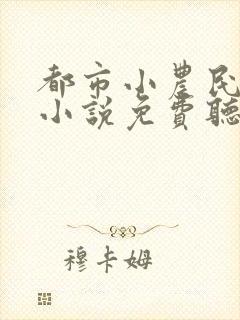 都市小農民
小說免費聽
穆卡姆